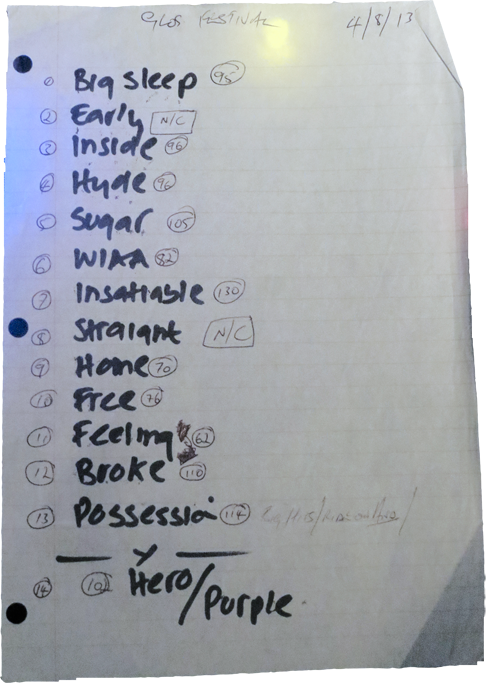 GLOS FESTIVAL 4/8/13
1 Big Sleep 95
2 Early N/C
3 Inside 96
4 Hyde 96
5 Sugar 105
6 WIAA 82
7 Insatiable 130
8 Straight N/C
9 Home 70
10 Free 76
11 Feeling 62
12 Broke 110
13 Possession 114
14 Hero/Purple